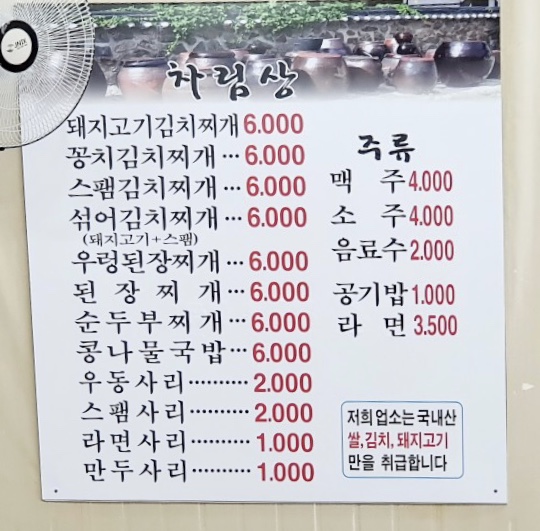 차림상
돼지고기김치찌개 6.000
꽁치김치찌개 ··· 6.000
스팸김치찌개 ··· 6.000
섞어김치찌개 ··· 6.000
(돼지고기+스팸)
우렁된장찌개 ··· 6.000
된 장 찌 개 ··· 6.000
순두부찌개 ··· 6.000
콩나물국밥 ··· 6.000
우동사리 ·········· 2.000
스팸사리 ·········· 2.000
라면사리 ·········· 1.000
만두사리 ·········· 1.000
주류
맥 주 4.000
소 주 4.000
음료수 2.000
공기밥 1.000
라 면 3.500
저희 업소는 국내산
쌀,김치, 돼지고기
만을 취급합니다